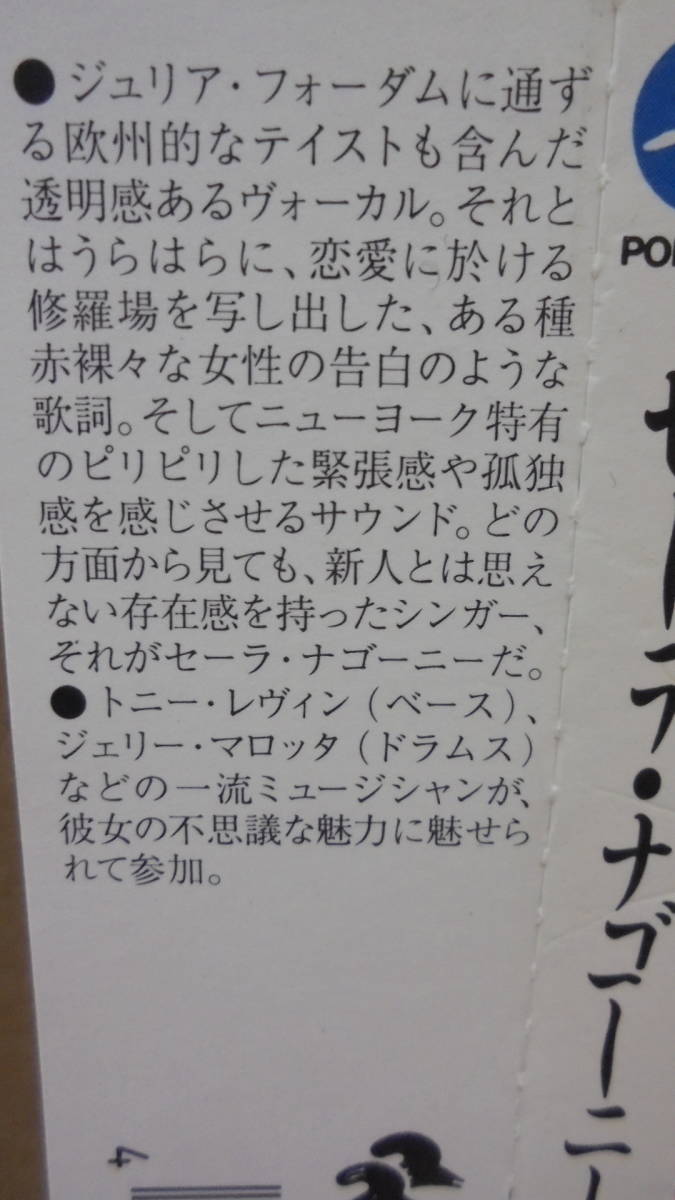 ●ジュリア・フォーダムに通ず
る欧州的なテイストも含んだ
透明感あるヴォーカル。それと
はうらはらに、恋愛に於ける
修羅場を写し出した、ある種
赤裸々な女性の告白のような
歌詞。そしてニューヨーク特有
のピリピリした緊張感や孤独
感を感じさせるサウンド。どの
方面から見ても、新人とは思え
ない存在感を持ったシンガー、
それがセーラ・ナゴーニーだ。
●トニー・レヴィン(ベース)、
ジェリー・マロッタ(ドラムス)
などの一流ミュージシャンが、
彼女の不思議な魅力に魅せら
れて参加。
セーラ・ナゴーニー
4